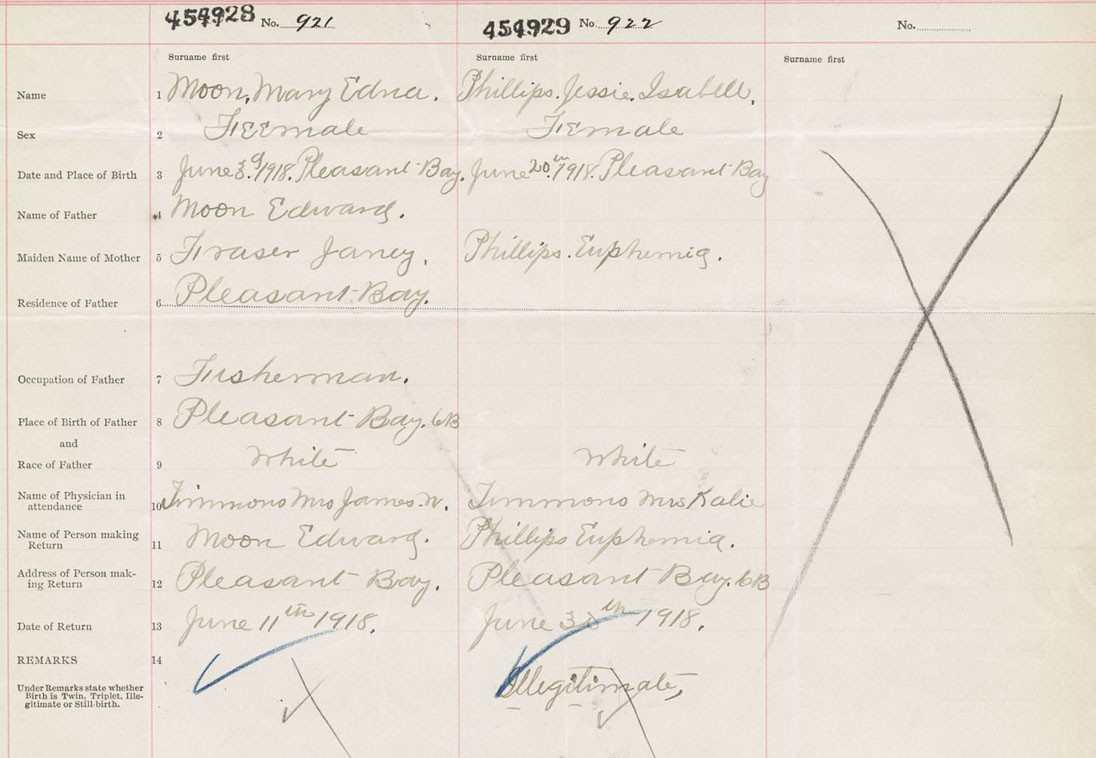 454928 No. 921 454929 No. 922 No.
Surname first Surname first Surname first
Name 1 Moon, Mary Edna. Phillips. Jessie, Isabell.
Sex 2 Feemale Female
Date and Place of Birth 3 June 3. 1918. Pleasant Bay. June 20th 1918. Pleasant Bay
Name of Father 4 Moon Edward.
Maiden Name of Mother 5 Fraser Janey. Phillips. Euphemia.
Residence of Father 6 Pleasant Bay.
Occupation of Father 7 Fisherman.
Place of Birth of Father 8 Pleasant Bay. CB
and
Race of Father 9 White White
Name of Physician in
attendance 10 Timmons Mrs James W. Timmons Mrs Katie
Name of Person making
Return 11 Moon Edward. Phillips Euphemia.
Address of Person mak-
ing Return 12 Pleasant Bay. Pleasant Bay. CB
Date of Return 13 June 11th 1918. June 30th 1918.
REMARKS 14
Under Remarks state whether
Birth is Twin, Triplet, Ille-
gitimate or Still-birth.
Illegitimate,